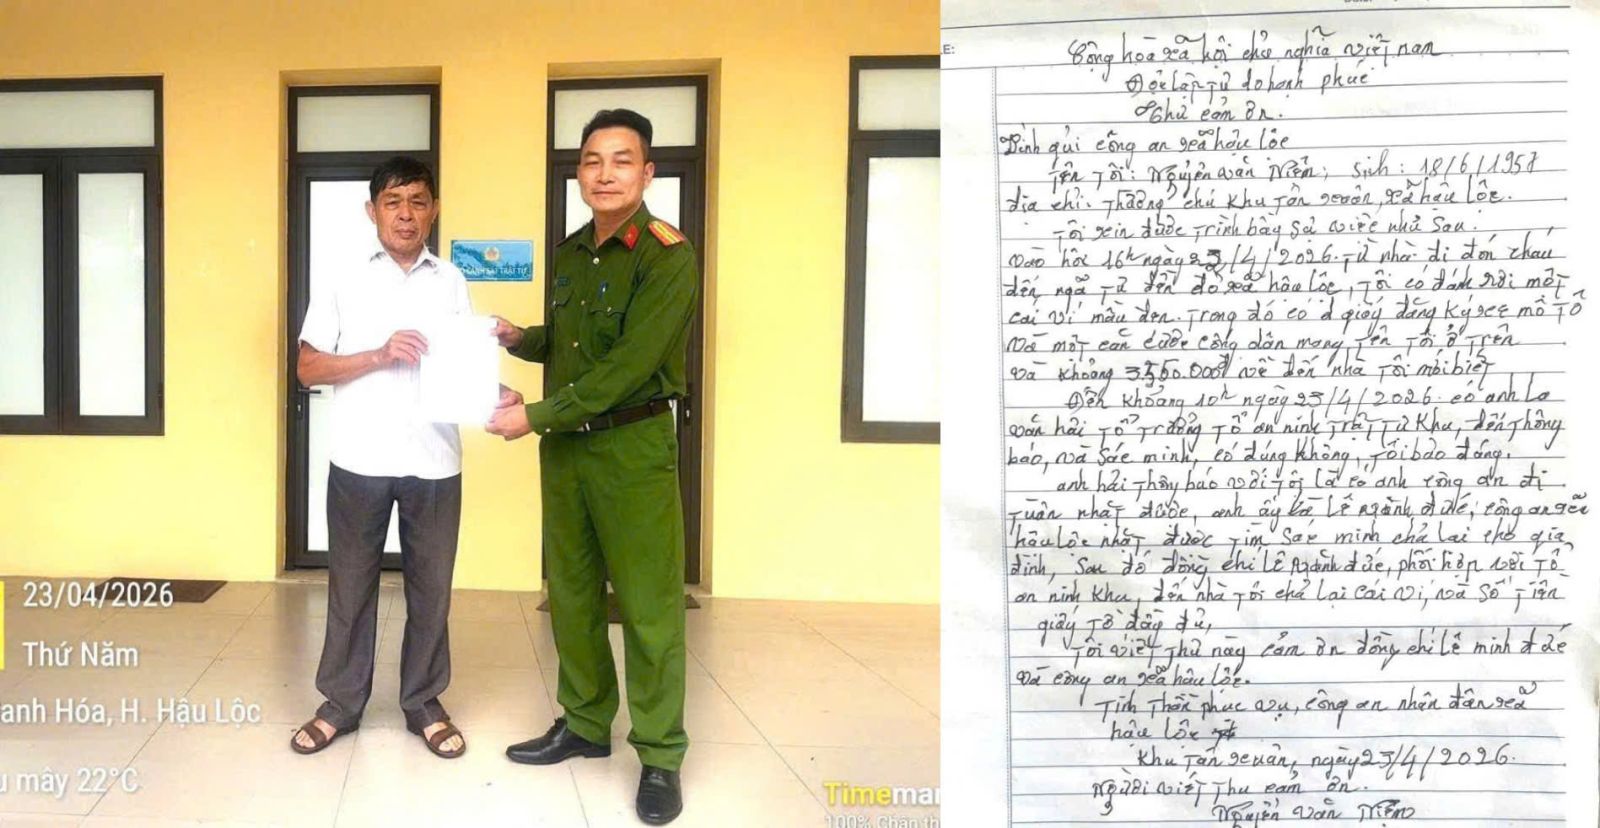 CẢNH SÁT TRẬT TỰ
23/04/2026
Thứ Năm
anh Hóa, H. Hậu Lộc
u mây 22°C
Timemar
100% Chân th
E:
Cộng hòa xã hội chủ nghĩa việt nam
Độc lập tự do hạnh phúc
Thư cảm ơn.
Kính gửi công an xã hậu lộc
Tên tôi: Nguyễn Văn Niềm, Sinh: 18/6/1957
địa chỉ: Thường chú khu tân xuân, xã hậu lộc.
Tôi xin được trình bày sự việc như sau:
vào hồi 16h ngày 23/4/2026. Từ nhà đi đón cháu
đến ngã tư đền đỏ xã hậu lộc, tôi có đánh rơi một
cái ví màu đen. Trong đó có 1 giấy đăng ký xe mô tô
và một căn cước công dân mang tên tôi ở trên
và khoảng 3.500.000đ về đến nhà tôi mới biết
Đến khoảng 10h ngày 23/4/2026. có anh La
văn hải tổ trưởng tổ an ninh trật tự khu, đến thông
báo, và sác minh, có đúng không, tôi bảo đúng.
anh hải thông báo với tôi là có anh công an đi
tuần nhặt được, anh ấy là Lê ngành đức, công an xã
hậu lộc nhặt được tìm sác minh chả lại cho gia
đình, sau đó đồng chí Lê ngành đức, phối hợp với tổ
an ninh khu, đến nhà tôi chả lại cái ví, và số tiền
giấy tờ đầy đủ,
Tôi viết thư này cảm ơn đồng chí lê minh đức
và công an xã hậu lộc.
Tinh thần phục vụ, công an nhân dân xã
hậu lộc
khu tân xuân, ngày 23/4/2026.
Người viết thư cảm ơn.
Nguyễn văn Niềm